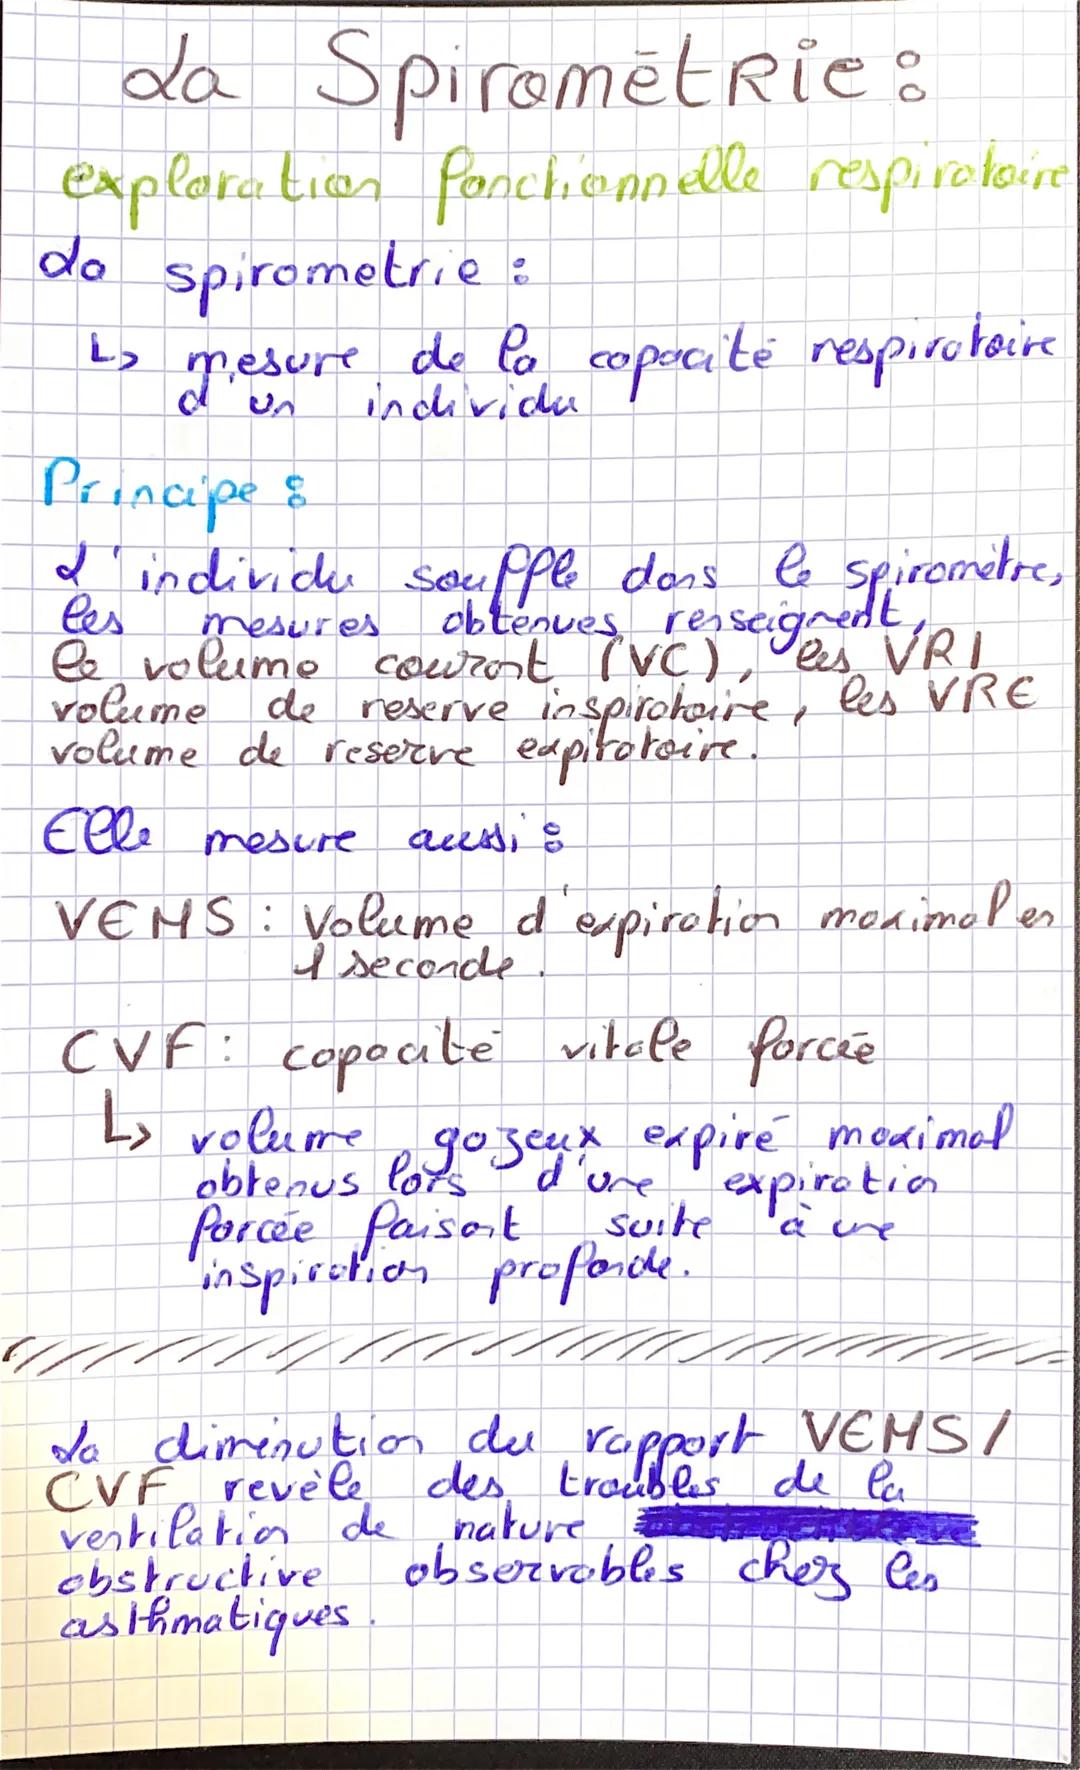 La Spirométrie :
exploration fonctionnelle respiratoire
La spirometrie :
↳ mesure de la capacité respiratoire
d'un individu
Principe :
L'individu souffle dans le spiromètre,
les mesures obtenues renseignent,
le volume courant (VC), les VRI
volume de reserve inspiratoire, les VRE
volume de reserve expiratoire.
Elle mesure aussi :
VEMS : Volume d'expiration maximal en
1 seconde.
CVF : capacité vitale forcée
↳ volume gazeux expiré maximal
obtenus lors d'une expiration
forcée faisant suite à une
inspiration profonde.
La diminution du rapport VEMS/
CVF revèle des troubles de la
ventilation de nature
obstructive observables chez les
asthmatiques.